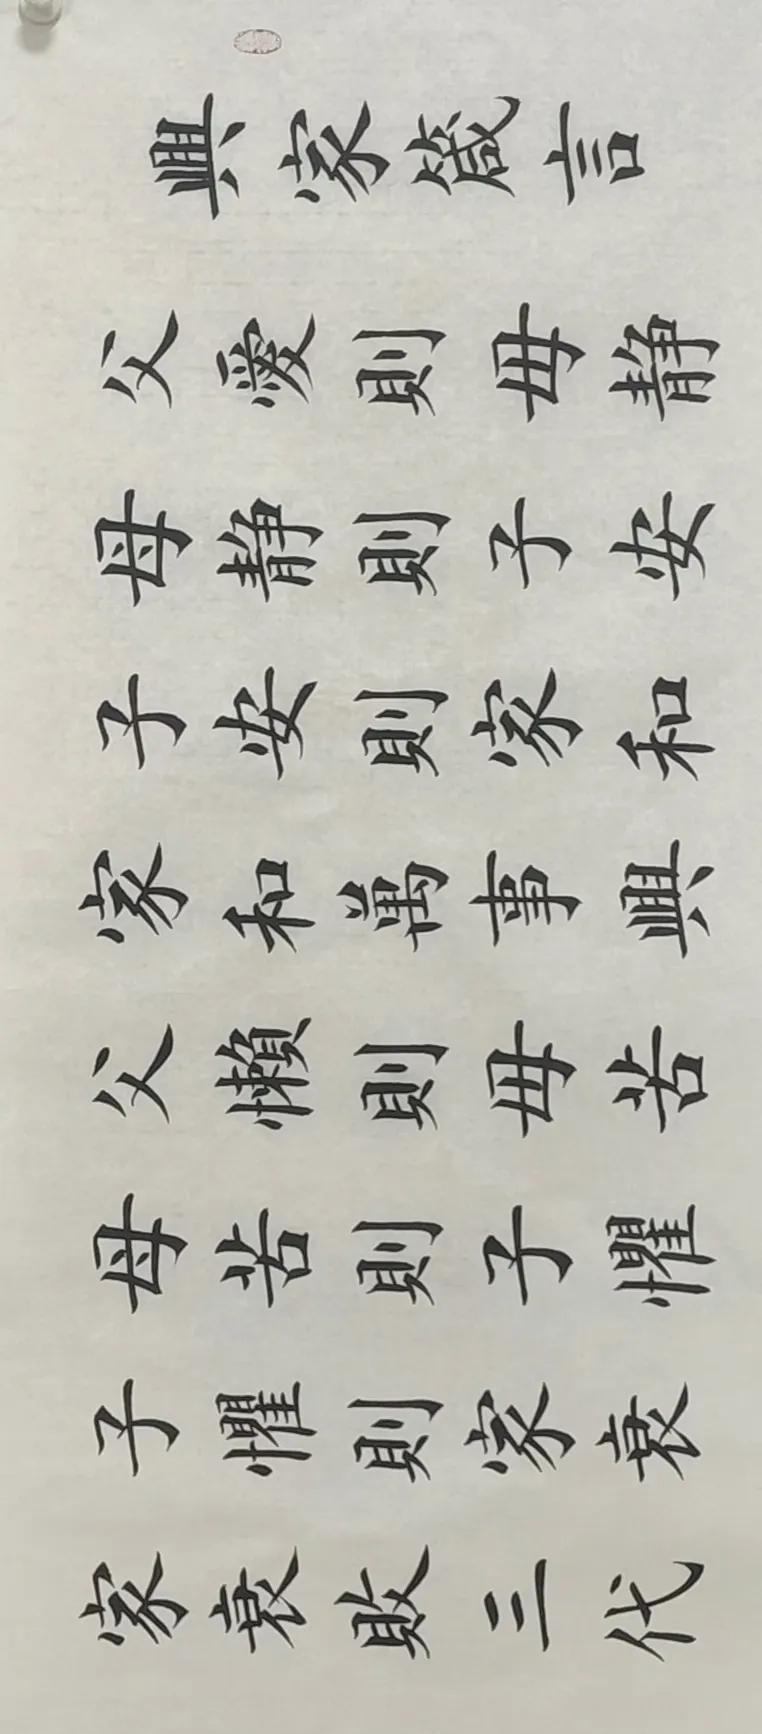 興家箴言
父愛則母静
母静則子安
子安則家和
家和萬事興
父懶則母苦
母苦則子懼
子懼則家衰
家衰敗三代